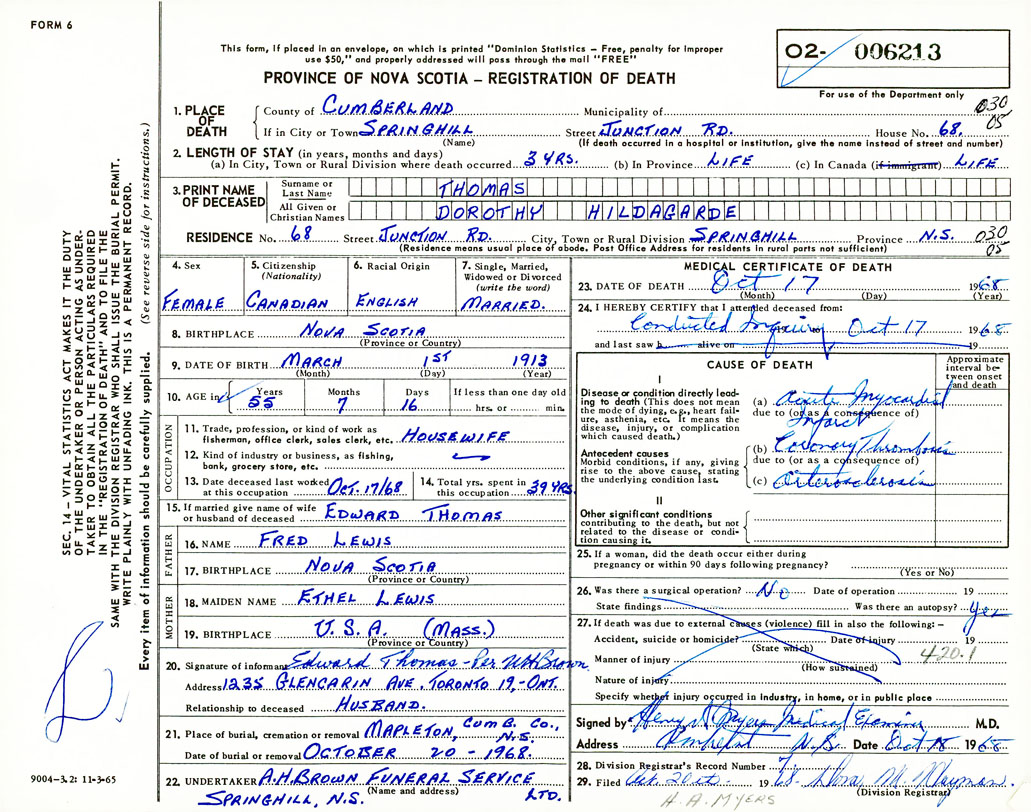 FORM 6
This form, if placed in an envelope, on which is printed "Dominion Statistics – Free, penalty for improper
use $50," and properly addressed will pass through the mail "FREE"
02- 006213
PROVINCE OF NOVA SCOTIA – REGISTRATION OF DEATH
For use of the Department only
1. PLACE OF DEATH
County of CUMBERLAND Municipality of 030
If in City or Town SPRINGHILL Street JUNCTION RD. House No. 68. 05
(Name) (If death occurred in a hospital or institution, give the name instead of street and number)
2. LENGTH OF STAY (in years, months and days)
(a) In City, Town or Rural Division where death occurred 3 YRS. (b) In Province LIFE (c) In Canada (if immigrant) LIFE
3. PRINT NAME OF DECEASED
Surname or Last Name THOMAS
All Given or Christian Names DOROTHY HILDAGARDE
RESIDENCE No. 68 Street JUNCTION RD. City, Town or Rural Division SPRINGHILL Province N.S. 030
(Residence means usual place of abode. Post Office Address for residents in rural parts not sufficient) 05
4. Sex FEMALE
5. Citizenship (Nationality) CANADIAN
6. Racial Origin ENGLISH
7. Single, Married, Widowed or Divorced (write the word) MARRIED.
8. BIRTHPLACE NOVA SCOTIA
(Province or Country)
9. DATE OF BIRTH MARCH 1ST 1913
(Month) (Day) (Year)
10. AGE in Years 55 Months 7 Days 16 If less than one day old
hrs. or min.
OCCUPATION
11. Trade, profession, or kind of work as
fisherman, office clerk, sales clerk, etc. HOUSEWIFE
12. Kind of industry or business, as fishing,
bank, grocery store, etc.
13. Date deceased last worked at this occupation OCT. 17/68
14. Total yrs. spent in this occupation 39 YRS.
15. If married give name of wife
or husband of deceased EDWARD THOMAS
FATHER
16. NAME FRED LEWIS
17. BIRTHPLACE NOVA SCOTIA
(Province or Country)
MOTHER
18. MAIDEN NAME ETHEL LEWIS
19. BIRTHPLACE U.S.A. (MASS.)
(Province or Country)
20. Signature of informant Edward Thomas - Per WH Brown
Address 1235 GLENCARIN AVE, TORONTO 19,-ONT.
Relationship to deceased HUSBAND.
21. Place of burial, cremation or removal MAPLETON, CUMB. CO., N.S.
Date of burial or removal OCTOBER 20 - 1968.
22. UNDERTAKER A.H. BROWN FUNERAL SERVICE
(Name and address)
SPRINGHILL, N.S. LTD.
MEDICAL CERTIFICATE OF DEATH
23. DATE OF DEATH Oct 17 1968
(Month) (Day) (Year)
24. I HEREBY CERTIFY that I attended deceased from:
Conducted Inquiry Oct 17 1968
and last saw h alive on 19
CAUSE OF DEATH
Approximate interval between onset and death
I
Disease or condition directly leading to death (This does not mean the mode of dying, e.g., heart failure, asthenia, etc. It means the disease, injury, or complication which caused death.)
(a) Acute Myocardial
due to (or as a consequence of)
Infarct
Antecedent causes
Morbid conditions, if any, giving rise to the above cause, stating the underlying condition last.
(b) Coronary Thrombosis
due to (or as a consequence of)
(c) Arteriosclerosis
II
Other significant conditions
contributing to the death, but not related to the disease or condition causing it.
25. If a woman, did the death occur either during
pregnancy or within 90 days following pregnancy?
(Yes or No)
26. Was there a surgical operation? No Date of operation 19
State findings Was there an autopsy? Yes
27. If death was due to external causes (violence) fill in also the following: –
Accident, suicide or homicide? Date of injury 19
(State which) 420.1
Manner of injury
(How sustained)
Nature of injury
Specify whether injury occurred in industry, in home, or in public place
Signed by Henry A Myers Medical Examiner M.D.
Address Amherst N.S. Date Oct 18 1968
28. Division Registrar's Record Number 7
29. Filed Oct. 20th 1968.
(Division Registrar)
H. A. MYERS
SEC. 14 – VITAL STATISTICS ACT MAKES IT THE DUTY
OF THE UNDERTAKER OR PERSON ACTING AS UNDER-
TAKER TO OBTAIN ALL THE PARTICULARS REQUIRED
IN THE "REGISTRATION OF DEATH" AND TO FILE THE
SAME WITH THE DIVISION REGISTRAR WHO SHALL ISSUE THE BURIAL PERMIT.
WRITE PLAINLY WITH UNFADING INK. THIS IS A PERMANENT RECORD.
Every item of information should be carefully supplied. (See reverse side for instructions.)
9004-3.2: 11-3-65